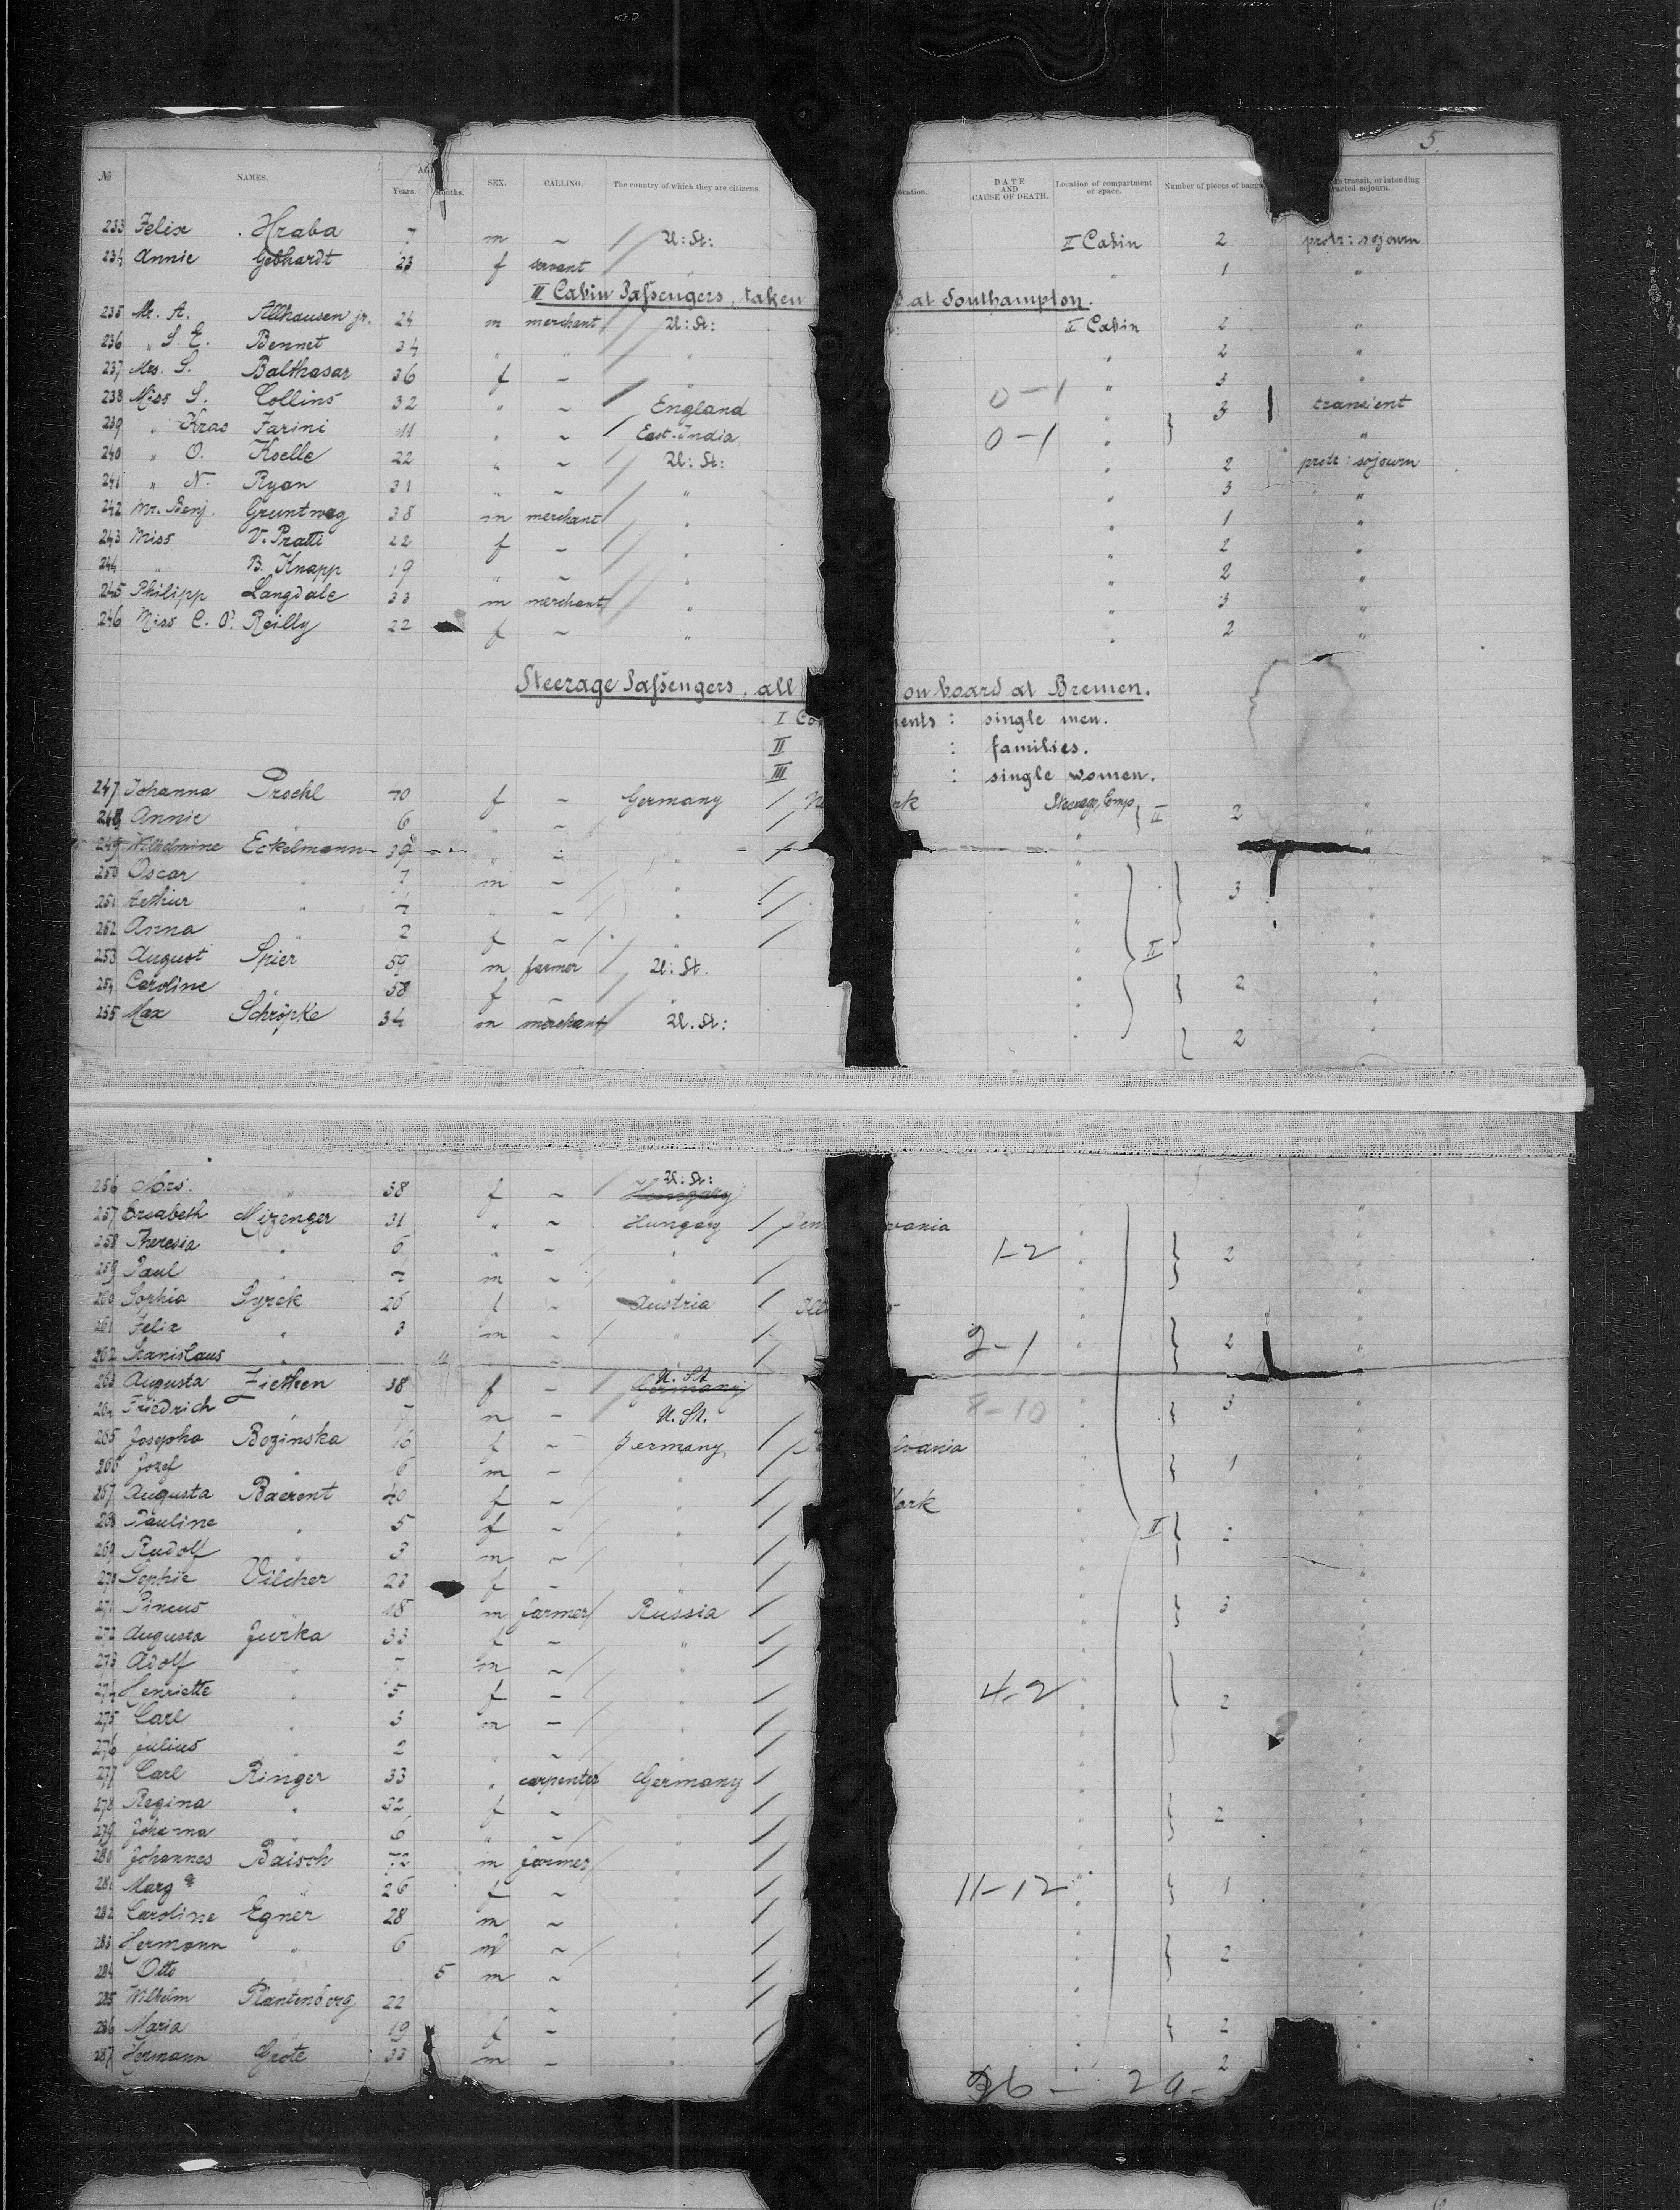 5.
№ NAMES. AGE Years. Months. SEX. CALLING. The country of which they are citizens. ocation. DATE AND CAUSE OF DEATH. Location of compartment or space. Number of pieces of bagga transit, or intending racted sojourn.
233 Felix Hraba 7 m ~ U: St: II Cabin 2 protr: sojourn
234 Annie Gebhardt 23 f servant " " 1 "
II Cabin Passengers, taken d at Southampton.
235 Mr. A. Allhausen jr. 24 m merchant U: St: II Cabin 2 "
236 " S. E. Bennet 34 " " " " 2 "
237 Mrs. S. Balthasar 36 f ~ " " 3 "
238 Miss S. Collins 32 " ~ England 0-1 " 3 transient
239 " Krao Farini 11 " ~ East-India 0-1 " "
240 " O. Koelle 22 " ~ U: St: " 2 protr: sojourn
241 " N. Ryan 31 " ~ " " 3 "
242 Mr. Benj. Gruntweg 38 m merchant " " 1 "
243 Miss V. Pratti 22 f ~ " " 2 "
244 " B. Knapp 19 " ~ " " 2 "
245 Philipp Langdale 33 m merchant " " 3 "
246 Miss C. O'. Reilly 22 f ~ " " 2 "
Steerage Passengers, all on board at Bremen.
I Co ents : single men.
II : families.
III : single women.
247 Johanna Proehl 70 f ~ Germany / N rk Steerage, Comp II 2 "
248 Annie " 6 " ~ " / "
249 Wilhelmine Eckelmann 39 " ~ " / " "
250 Oscar " 7 m ~ " / " 3 "
251 Arthur " 7 " ~ " / " "
252 Anna " 2 f ~ " / " "
253 August Spier 59 m farmer U: St. " II "
254 Caroline " 58 f ~ " " 2 "
255 Max Schröpke 34 m merchant U. St: " 2 "
256 Mrs. " 38 f ~ U: St: Hungary "
257 Ersabeth Mizenger 31 " ~ Hungary / Pen vania " "
258 Theresia " 6 " ~ " 1-2 " 2 "
259 Paul " 7 m ~ " / " "
260 Sophia Gyrck 26 f ~ Austria / " "
261 Felix " 3 m ~ " / 2-1 " 2 "
262 Stanislaus " ~ / "
263 Augusta Zietken 38 f ~ U. St. Germany 8-10 " 3 "
264 Friedrich " 7 m ~ U. St. " "
265 Josepha Bozinska 16 f ~ Germany / P lvania " "
266 Jozef " 6 m ~ " / " 1 "
267 Augusta Baerent 40 f ~ " / York " "
268 Pauline " 5 f ~ " / " II 2 "
269 Rudolf " 3 m ~ " / " "
270 Sophie Vilcher 23 f ~ " / " "
271 Pincus " 18 m farmer Russia / " 3 "
272 Augusta Jurka 33 f ~ " / " "
273 Adolf " 7 m ~ " / " "
274 Henriette " 5 f ~ " / 4-2 " 2 "
275 Carl " 3 m ~ " / " "
276 Julius " 2 " ~ " / " "
277 Carl Ringer 33 " carpenter Germany / " "
278 Regina " 32 f ~ " / " 2 "
279 Johanna " 6 " ~ " / " "
280 Johannes Baisch 72 m farmer " / " "
281 Marg " 26 f ~ " / 11-12 " 1 "
282 Caroline Egner 28 m ~ " / " "
283 Hermann " 6 m ~ " / " 2 "
284 Otto 5 m ~ / " "
285 Wilhelm Plantenberg 22 ~ " / " "
286 Maria " 19 f ~ " / " 2 "
287 Hermann Grote 33 m ~ " / " 2 "
36 - 29-